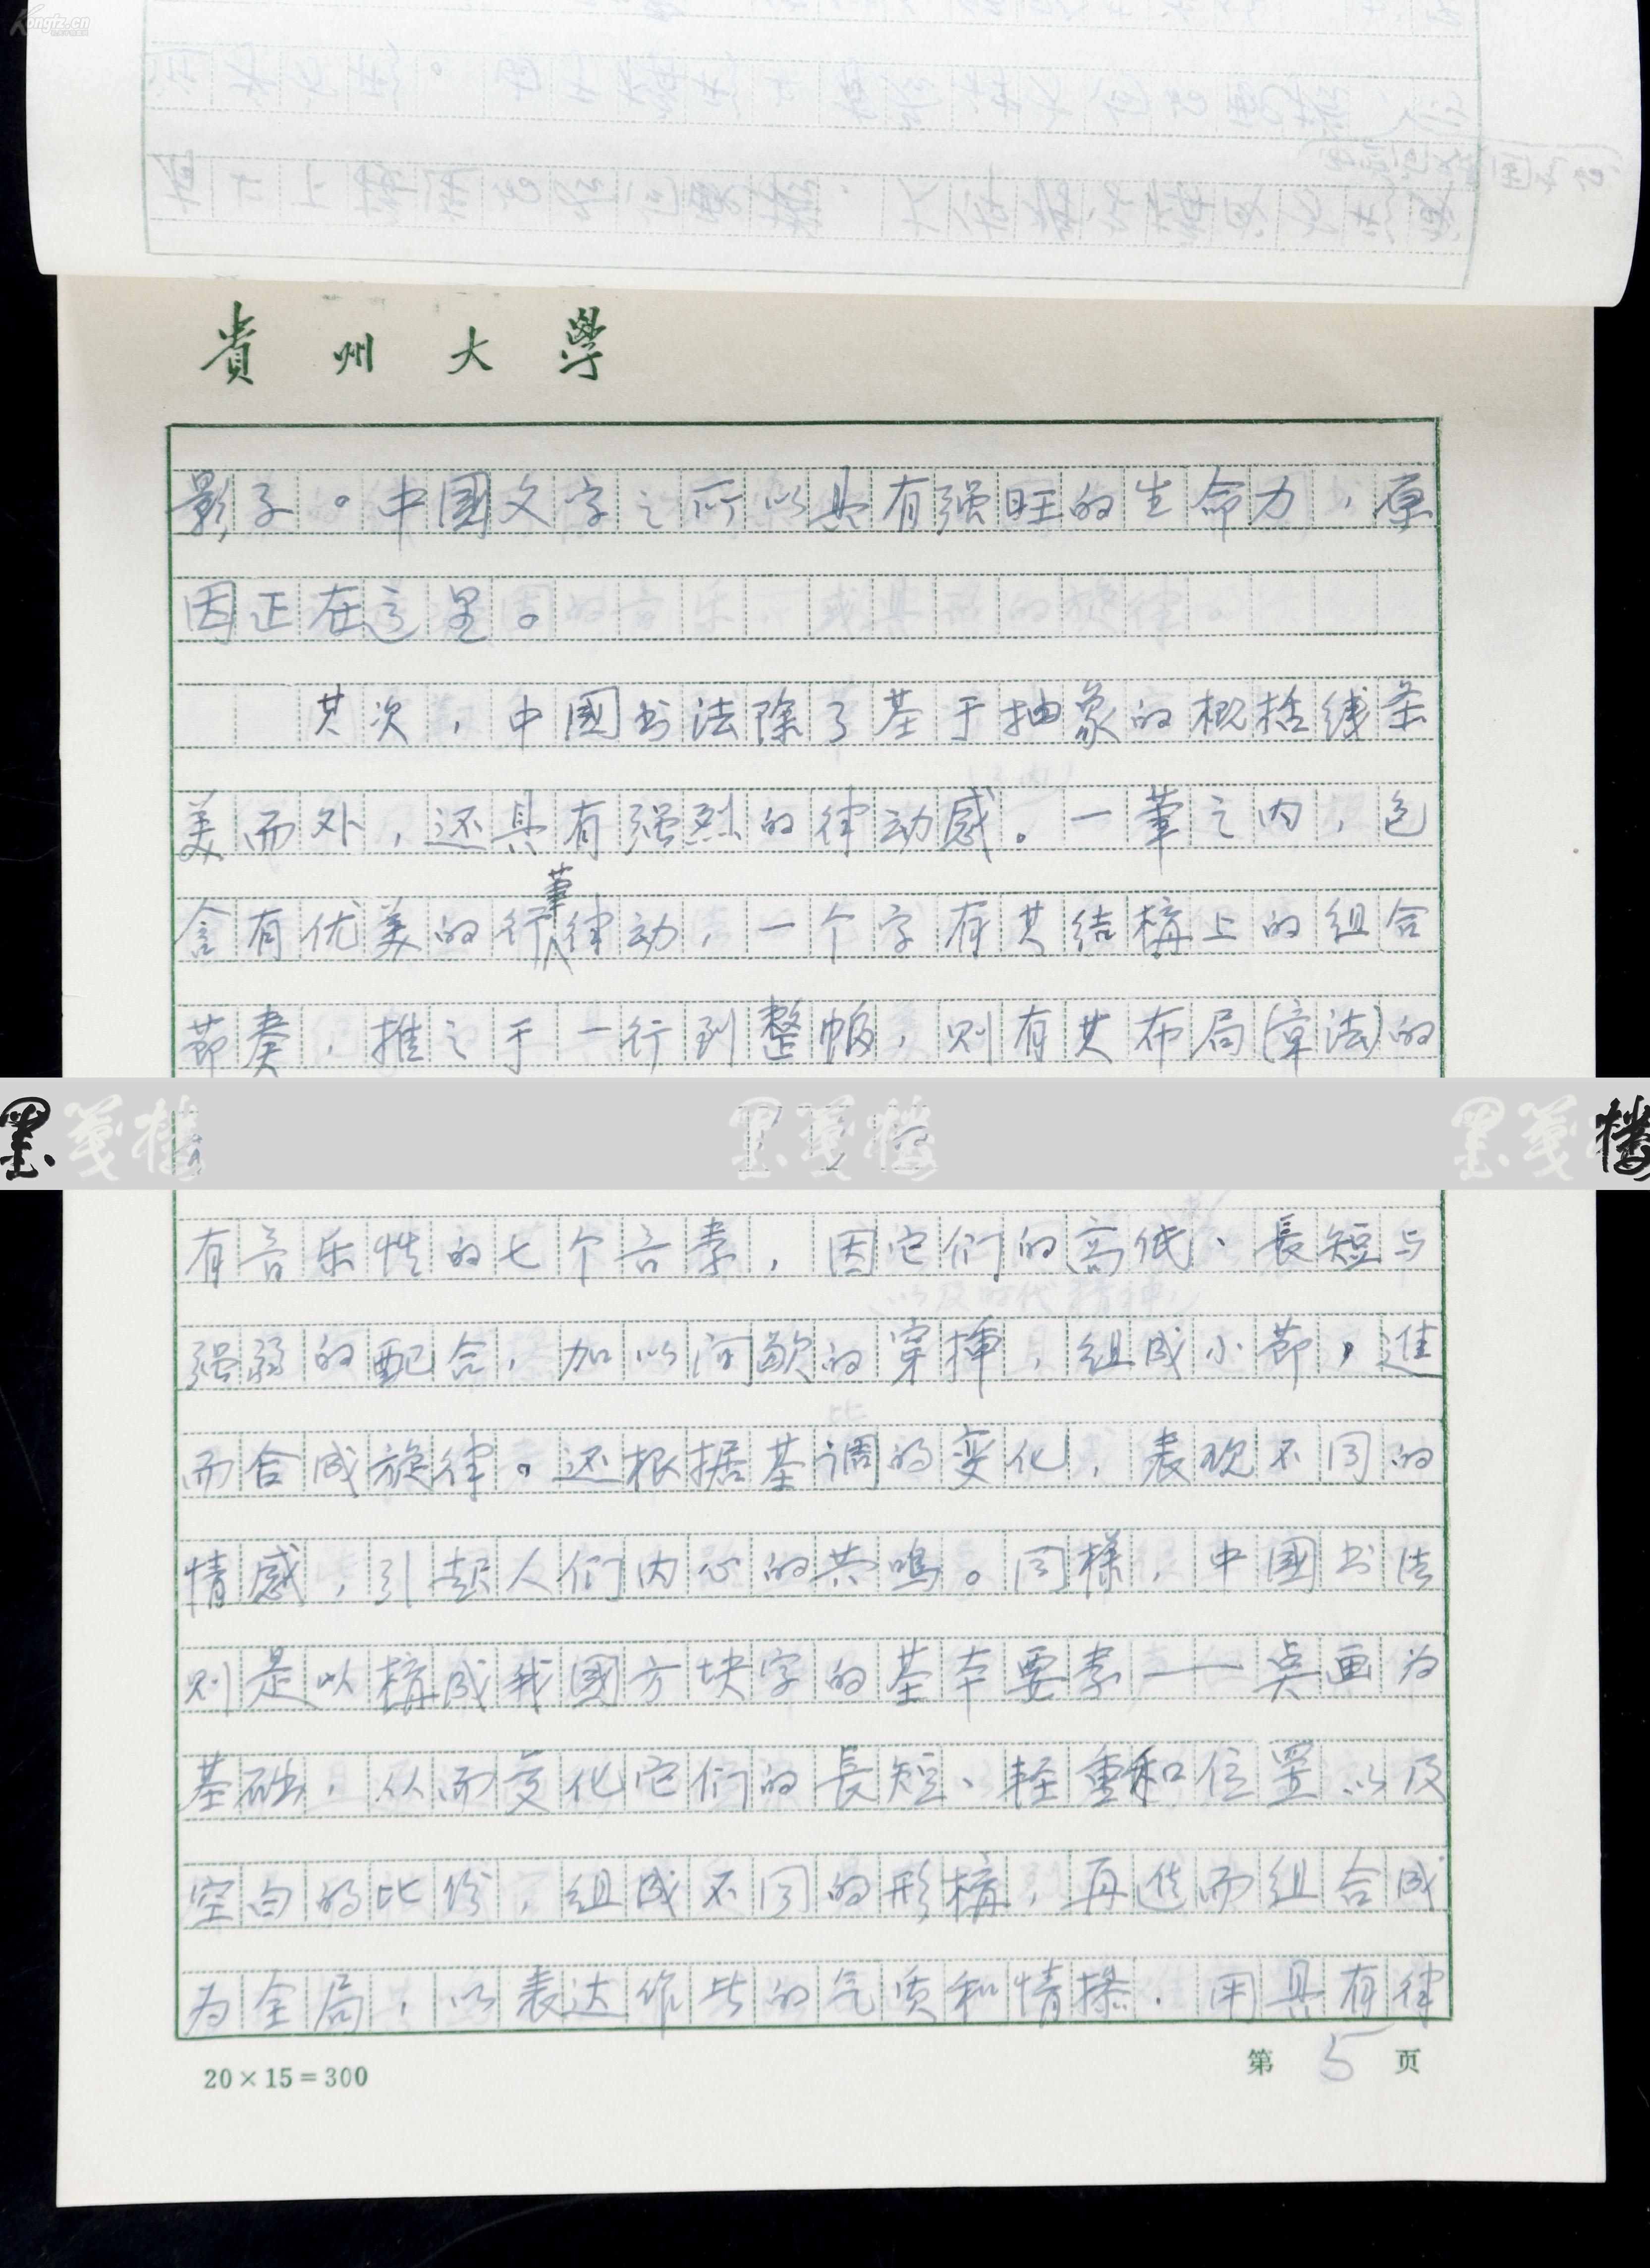 Kongfz.cn
貴州大學
影子。中國文字之所以具有强旺的生命力，原
因正在这里。
其次，中國书法除了基于抽象的概括线条
美而外，还具有强烈的律动感。一筆之内，包
含有优美的行筆律动，一个字有其结構上的组合
節奏，推之于一行到整幅，则有其布局(章法)的
墨箋樓 墨箋樓 墨箋樓
有音乐性的七个音素，因它们的高低、長短与
强弱的配合，加以间歇的穿揷，组成小節，進
而合成旋律。还根据基调的变化，表现不同的
情感，引起人们内心的共鳴。同樣，中國书法
则是以構成我國方块字的基本要素——点画为
基础，从而变化它们的長短、轻重和位置以及
空白的比份，组成不同的形構，再進而组合成
为全局，以表达作者的气质和情操．用具有律
20×15=300
第 5 页